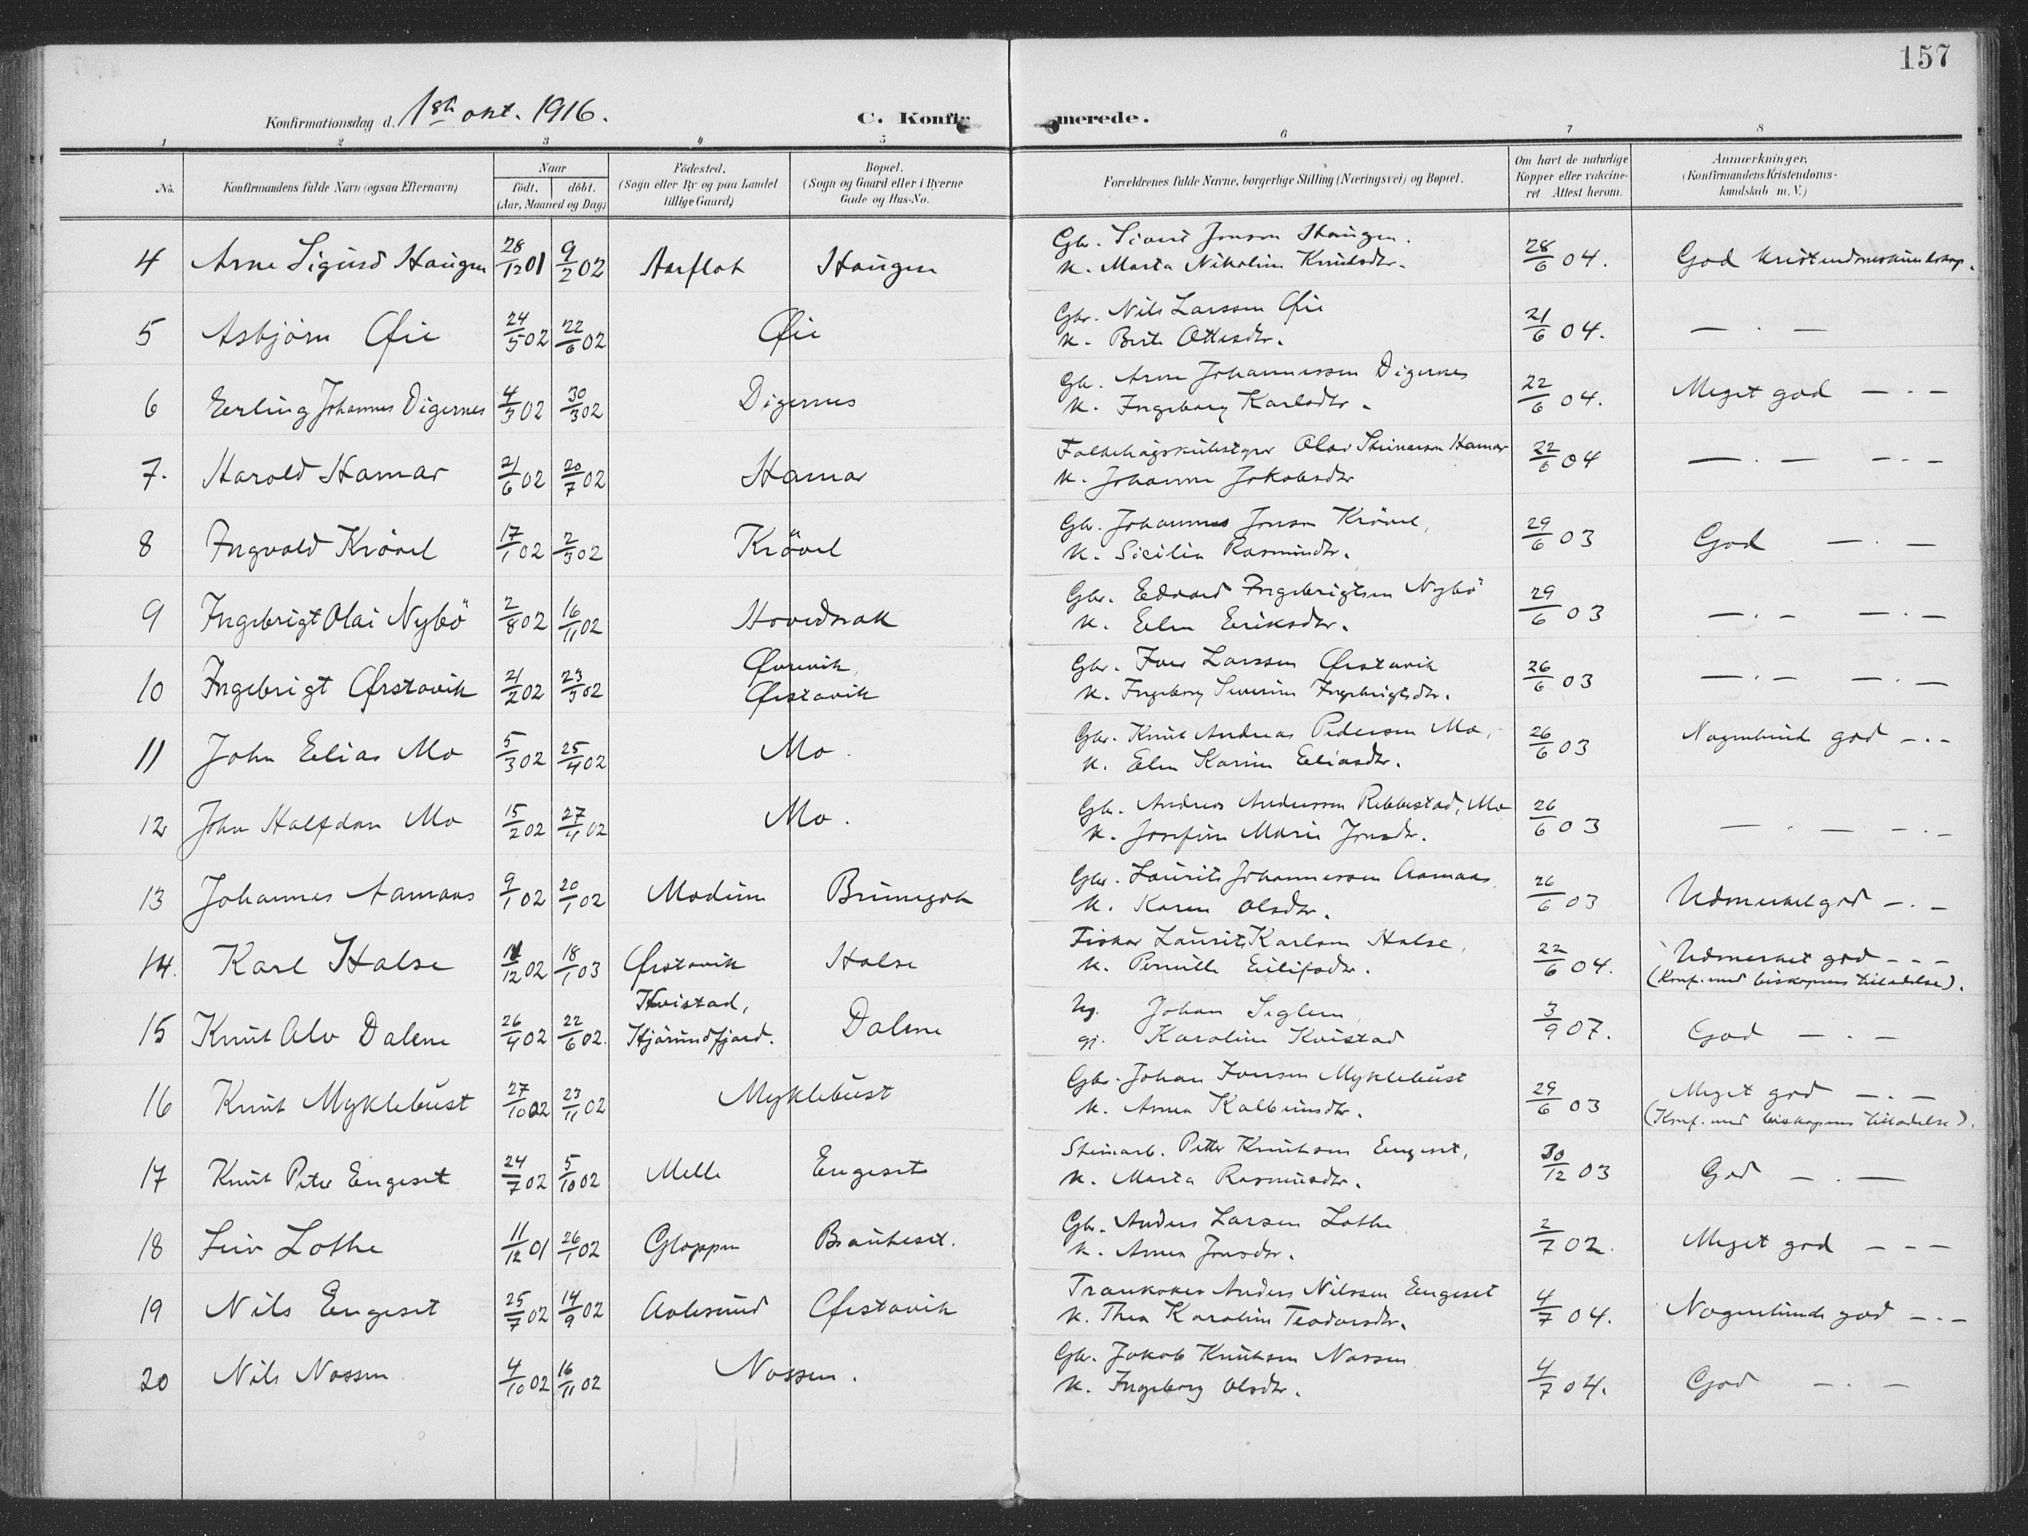 157
Konfirmationsdag d. 1ste okt. 1916.
C. Konfirmerede.
1 2 3 4 5 6 7 8
No.
Konfirmandens fulde Navn (ogsaa Efternavn)
Naar
födt. döbt.
(Aar, Maaned og Dag)
Födested.
(Sogn eller By og paa Landet
tillige Gaard)
Bopæl.
(Sogn og Gaard eller i Byerne
Gade og Hus-No.
Forældrenes fulde Navne, borgerlige Stilling (Næringsvei) og Bopæl.
Om havt de naturlige
Kopper eller vakcine-
ret Attest herom.
Anmærkninger.
(Konfirmandens Kristendoms-
kundskab m. V.)
4 Arne Sigurd Haugen 28/12 01 9/2 02 Aarflot Haugen Gbr. Sivert Jonson Haugen. 28/6 04. God kristendomskundskap.
k. Marta Nikoline Knutsdtr.
5 Asbjörn Øie 24/5 02 22/6 02 Øie Gbr. Nils Larssen Øie 21/6 04. — . —
k. Berte Ottesdtr.
6 Erling Johannes Digernes 4/3 02 30/3 02 Digernes Gbr. Arne Johannessen Digernes 22/6 04. Meget god — . —
k. Ingeborg Karlsdtr.
7. Harold Hamar 21/6 02 20/7 02 Hamar Olav Steinarson Hamar 22/6 04 — . — — . —
k. Johanne Jakobsdtr
8 Ingvald Krövel 17/1 02 2/3 02 Krövel Gbr. Johannes Jonson Krövel, 29/6 03 God — . —
k. Sicilia Rasmusdtr.
9 Ingebrigt Olai Nybö 2/8 02 16/11 02 Hovednak Gbr. Edvard Ingebrigtsen Nybö 29/6 03 — . — — . —
k. Elen Eriksdtr.
10 Ingebrigt Ørstavik 21/2 02 23/3 02 Øvrevik, Ørstavik Gbr. Iver Larssen Ørstavik 26/6 03 — . — — . —
k. Ingeborg Severine Ingebrigtsdtr.
11 John Elias Mo 5/3 02 25/4 02 Mo. Gbr. Knut Andreas Pedersen Mo, 26/6 03 Nogenlunde god — . —
k. Elen Karine Eliasdtr.
12 John Halfdan Mo 15/2 02 27/4 02 Mo. Gbr. Andreas Andersson Rebbestad, Mo 26/6 03 — . — — . —
k. Josefine Marie Jonsdtr.
13 Johannes Aamaas 9/1 02 20/1 02 Modum Brunegot Gbr. Laurits Johannessen Aamaas, 26/6 03 Udmerket god — . —
k. Karen Olsdtr.
14. Karl Halse 11/12 02 18/1 03 Ørstavik Halse Fisker Laurits Karlson Halse, 22/6 04. Udmerket god — - —
k. Pernille Eilifsdtr. (Konf. med biskopens tilladelse).
15 Knut Alv Dalene 26/4 02 22/6 02. Kvistad, Hjörundfjord. Dalene Ug. Johan Seglem, 3/9 07. God — . —
gj. Karoline Kvistad
16 Knut Myklebust 27/10 02 23/11 02 Myklebust Gbr. Johan Iversen Myklebust 29/6 03 Meget god — . —
k. Anna Kolbeinsdtr. (Konf. med biskopens tilladelse).
17 Knut Peter Engeset 24/7 02 5/10 02 Melle Engeset Steinarb. Petter Knutson Engeset, 30/12 03 God — . —
k. Marta Rasmusdtr.
18 Leiv Lothe 11/12 01 26/1 02 Gloppen Brauteset. Gbr. Anders Larsen Lothe 2/7 02. Meget god — - —
k. Anna Jonsdtr.
19 Nils Engeset 25/7 02 14/9 02 Aalesund Ørstavik Trankoker Anders Nilssen Engeset 4/7 04. Nogenlunde god — . —
k. Thea Karoline Teodorsdtr.
20 Nils Nossen 4/10 02 16/11 02 Nossen. Gbr. Jakob Knutson Nossen 4/7 04. God — . —
k. Ingeborg Olsdtr.